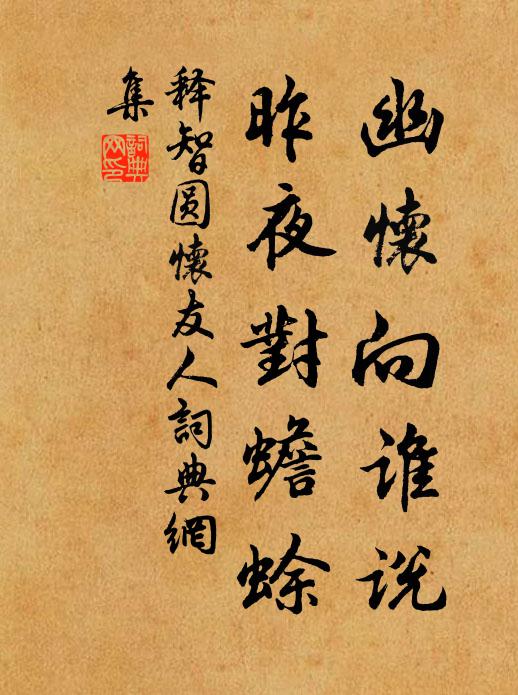 幽懷向谁说
昨夜對蟾蜍
释智圆懷友人詞典網
集
詞典
网印